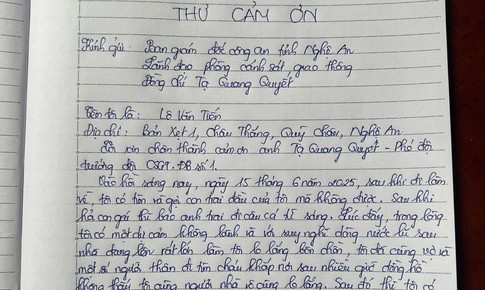 THƯ CẢM ƠN
Kính gửi: Ban giám đốc công an tỉnh Nghệ An
Lãnh đạo phòng cảnh sát giao thông
Đồng chí Tạ Quang Quyết
Tên tôi là: Lê Văn Tiến
Địa chỉ: Bản Xẹt 1, Châu Thắng, Quỳ Châu, Nghệ An
xin chân thành cảm ơn anh Tạ Quang Quyết - Phó đội
trưởng đội CSGT. ĐB số 1.
Vào hồi sáng nay, ngày 15 tháng 6 năm 2025, sau khi đi làm
về, tôi có tìm và gọi con trai đầu của tôi mà không được. Sau khi
hỏi con gái thì bảo anh trai đi câu cá từ sáng. Lúc đấy, trong lòng
tôi có một dự cảm không lành và với suy nghĩ dòng nước lũ sau
nhà đang lên rất lớn làm tôi lo lắng bồn chồn, tôi đã cùng vợ và
một số người thân đi tìm cháu khắp nơi sau nhiều giờ đồng hồ
không thấy tôi cùng người nhà vô cùng lo lắng. Sau đó thì tôi có